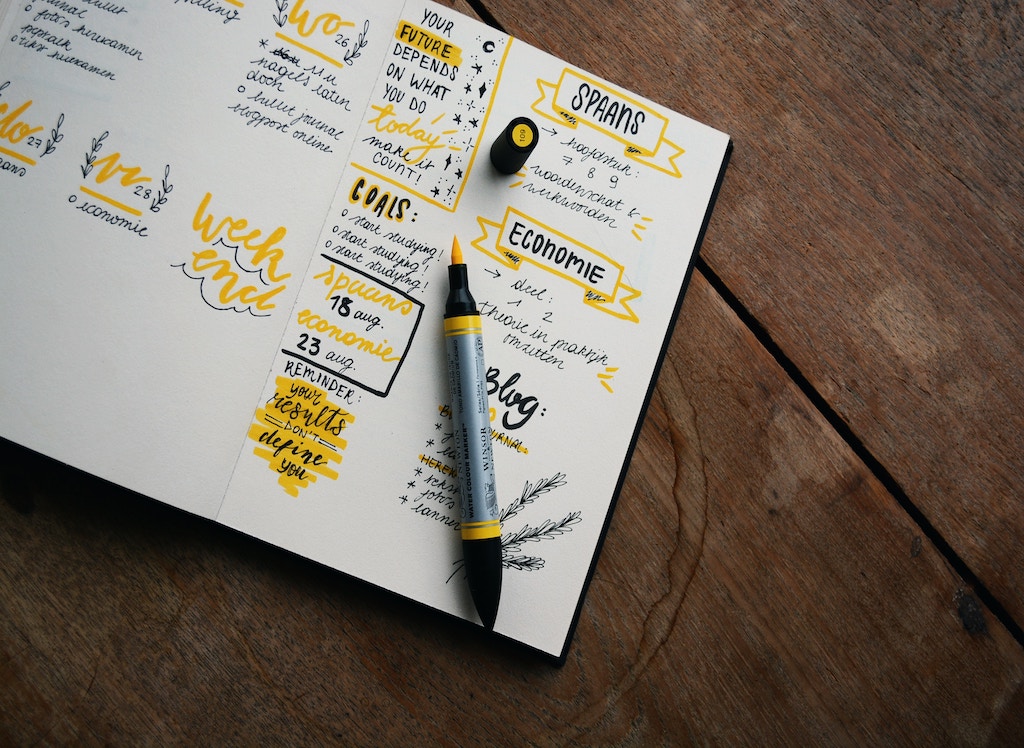 o foto's herexamen
o tekst herexamen
wo 26
nagels laten
doen
o bullet journal
blogpost online
do 27
vr 28
o economie
week
end
YOUR
FUTURE
DEPENDS
ON WHAT
YOU DO
today
make it
COUNT!
GOALS:
o start studying!
o start studying!
o start studying!
spaans
18 aug.
economie
23 aug.
REMINDER:
your
results
DON'T
define
you
109
SPAANS
→ hoofdstuk:
7 8 9
woordenschat &
werkwoorden
ECONOMIE
→ deel:
1 2
theorie in praktijk
omzetten
Blog:
JOURNAL:
* foto's
WATER COLOUR MARKER™
WINSOR